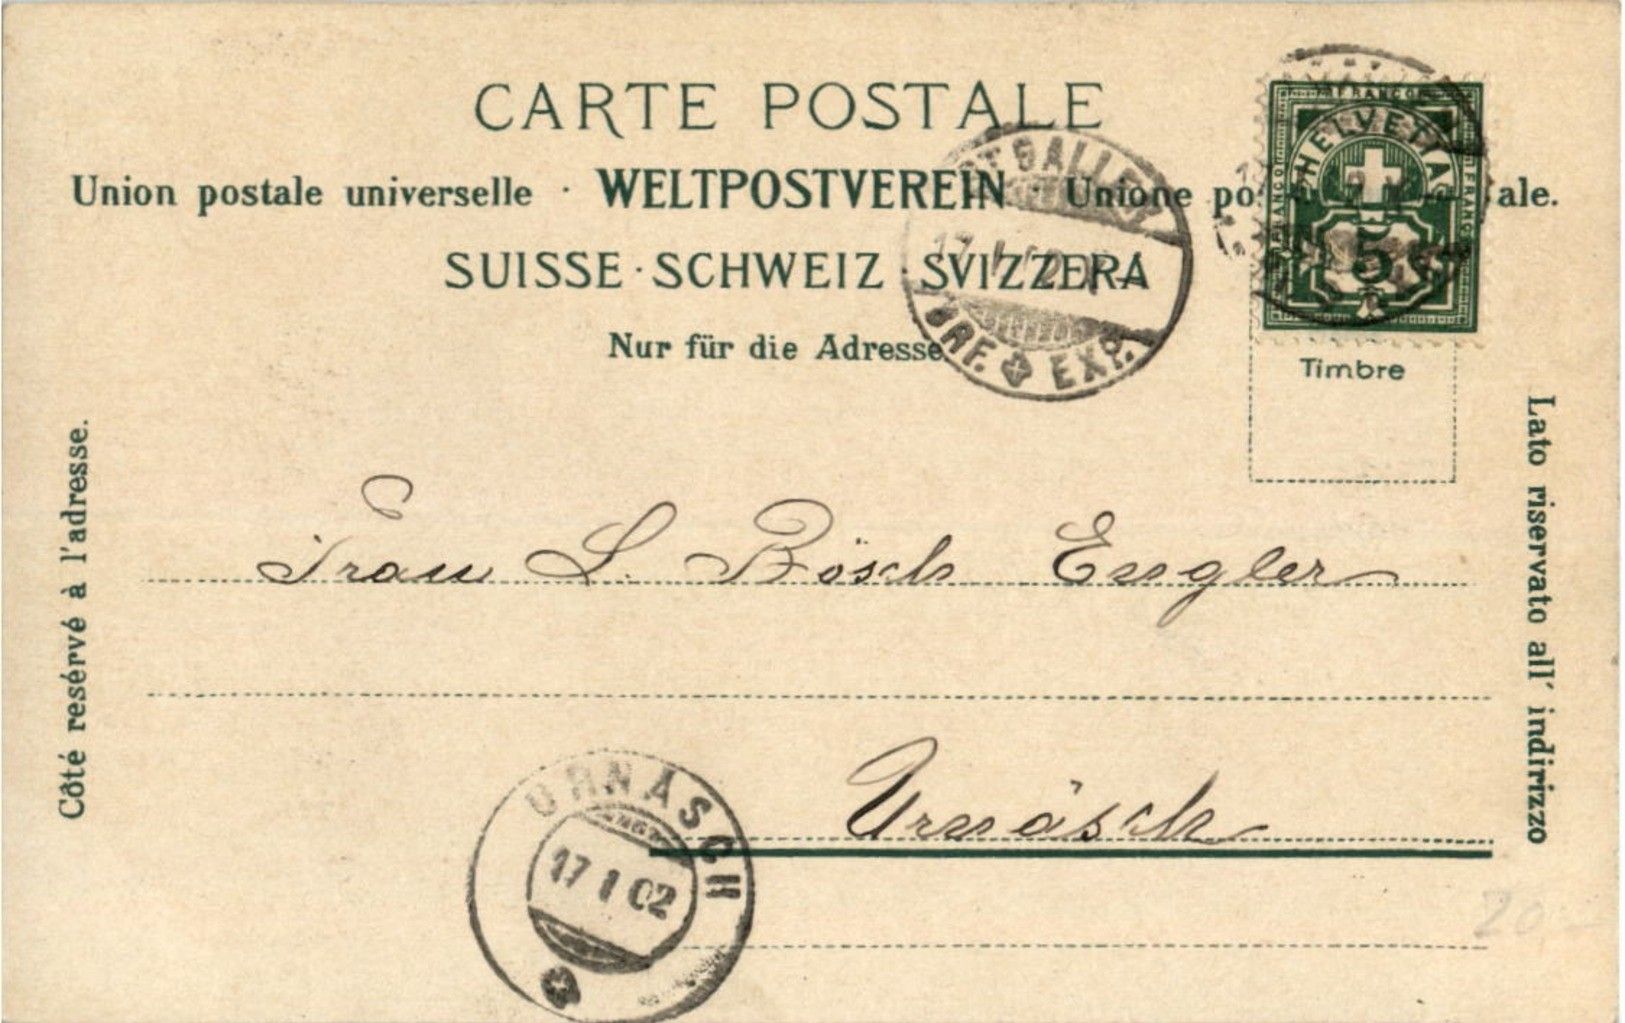 CARTE POSTALE
Union postale universelle · WELTPOSTVEREIN · Unione po ale.
SUISSE · SCHWEIZ · SVIZZERA
Nur für die Adresse
ST GALLEN
17. I. 02. V
BRF. EXP.
FRANCO
FRANCO
FRANCO
HELVETIA
5
Timbre
Côté resérvé à l'adresse.
Lato riservato all' indirizzo
Frau L. Bösch Engler
Urnäsch
URNÄSCH
17 I 02
20.–